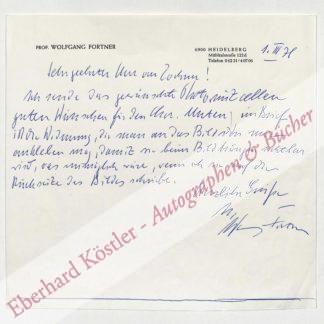 PROF. WOLFGANG FORTNER
6900 HEIDELBERG
Mühltalstraße 122d
Telefon 06221/46706
1. III 78
Sehr geehrter Herr von Zachner!
Ich sende das gewünschte Photo mit allen
guten Wünschen für den Hrn. Unten, im Brief
ist die Widmung, die man an das Bild
ankleben mag, damit sie beim
wird, was möglich wäre, wenn ich sie auf der
Rückseite des Bildes schreibe.
Herzliche Grüße
Ihr
Wolfgang Fortner
Eberhard Köstler - Autographen & Bücher